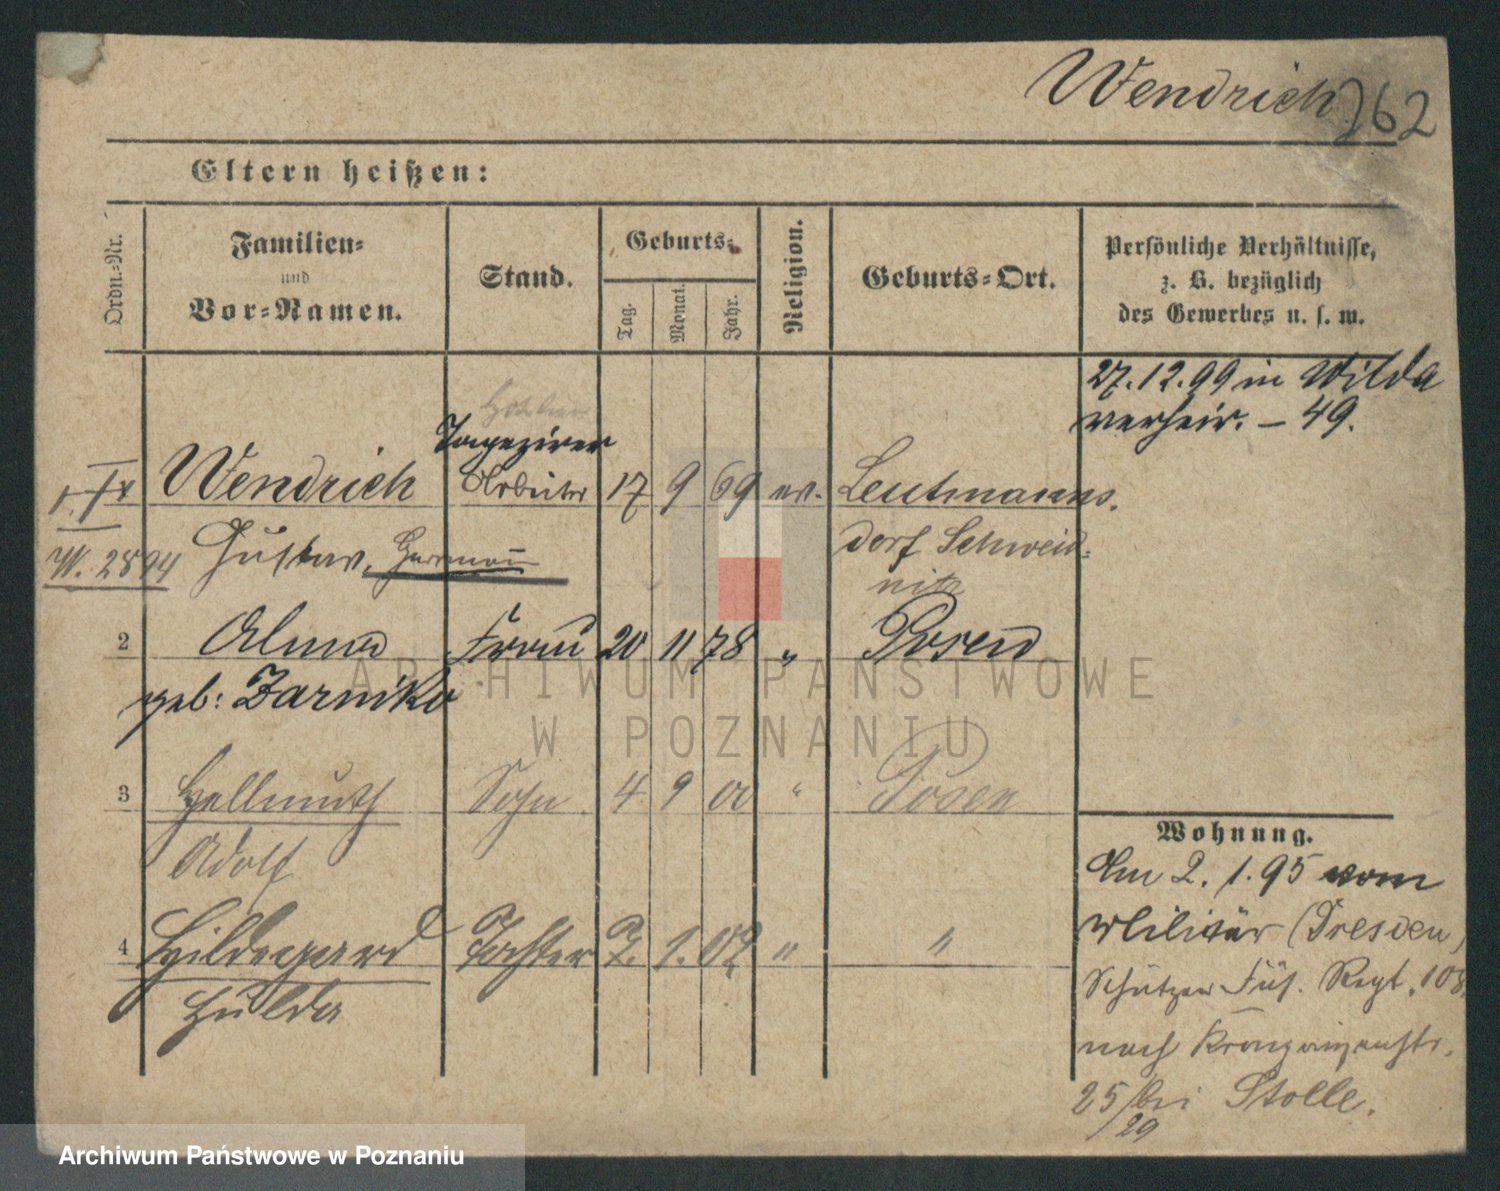 Wendrich 262
Eltern heißen:
Ordn.-Nr.
Familien-
und
Vor-Namen.
Stand.
Geburts-
Tag.
Monat.
Jahr.
Religion.
Geburts-Ort.
Persönliche Verhältnisse,
z. B. bezüglich
des Gewerbes u. s. w.
27.12.99 in Wilda
verheir. – 49.
Tapezirer
Wendrich Arbeiter 17 9 69 ev. Leutmanns-
Gustav, Hermann dorf Schweid-
W. 2894 nitz
2 Alma Frau 20 11 78 " Posen
geb: Zarniko
3 Hellmuth Sohn 4 9 00 " Posen
Adolf
4 Hildegard Tochter 7. 1. 02 " "
Hulda
Wohnung.
Am 2. 1. 95 vom
Militär (Dresden)
Schützen Füs. Regt. 108
nach Kronprinzenstr.
25/bei Stolle.
29
ARCHIWUM PAŃSTWOWE
W POZNANIU
Archiwum Państwowe w Poznaniu